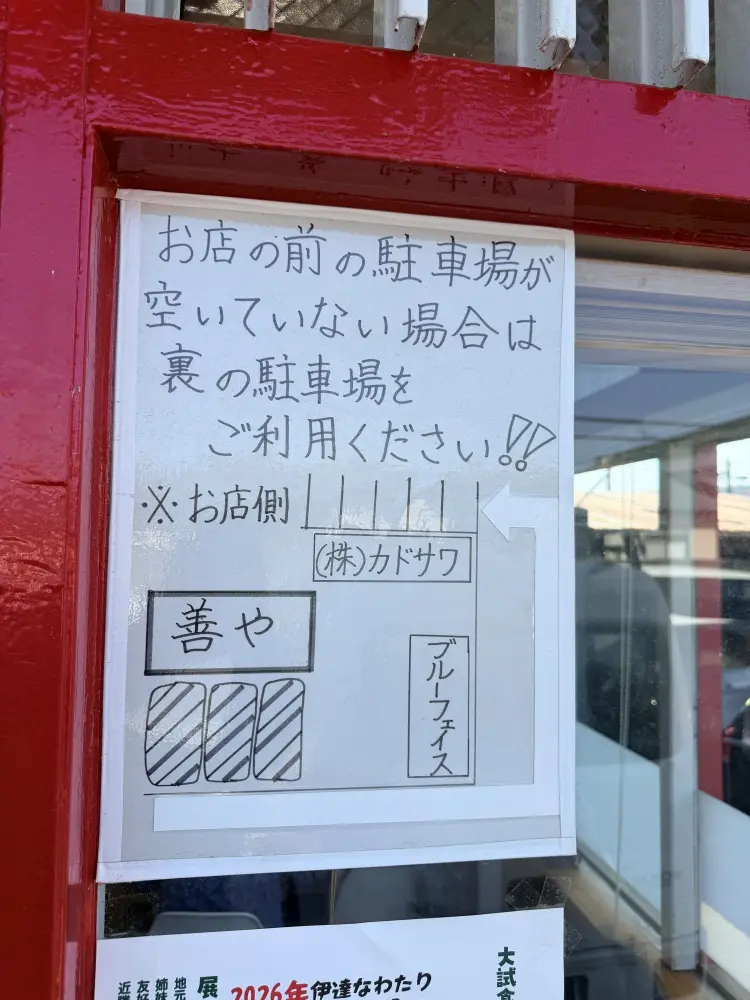 お店の前の駐車場が
空いていない場合は
裏の駐車場を
ご利用ください!!
※お店側
(株)カドサワ
善や
ブルーフェイス
大試食
展
2026年伊達なわたり
地元
姉妹
友好
近隣